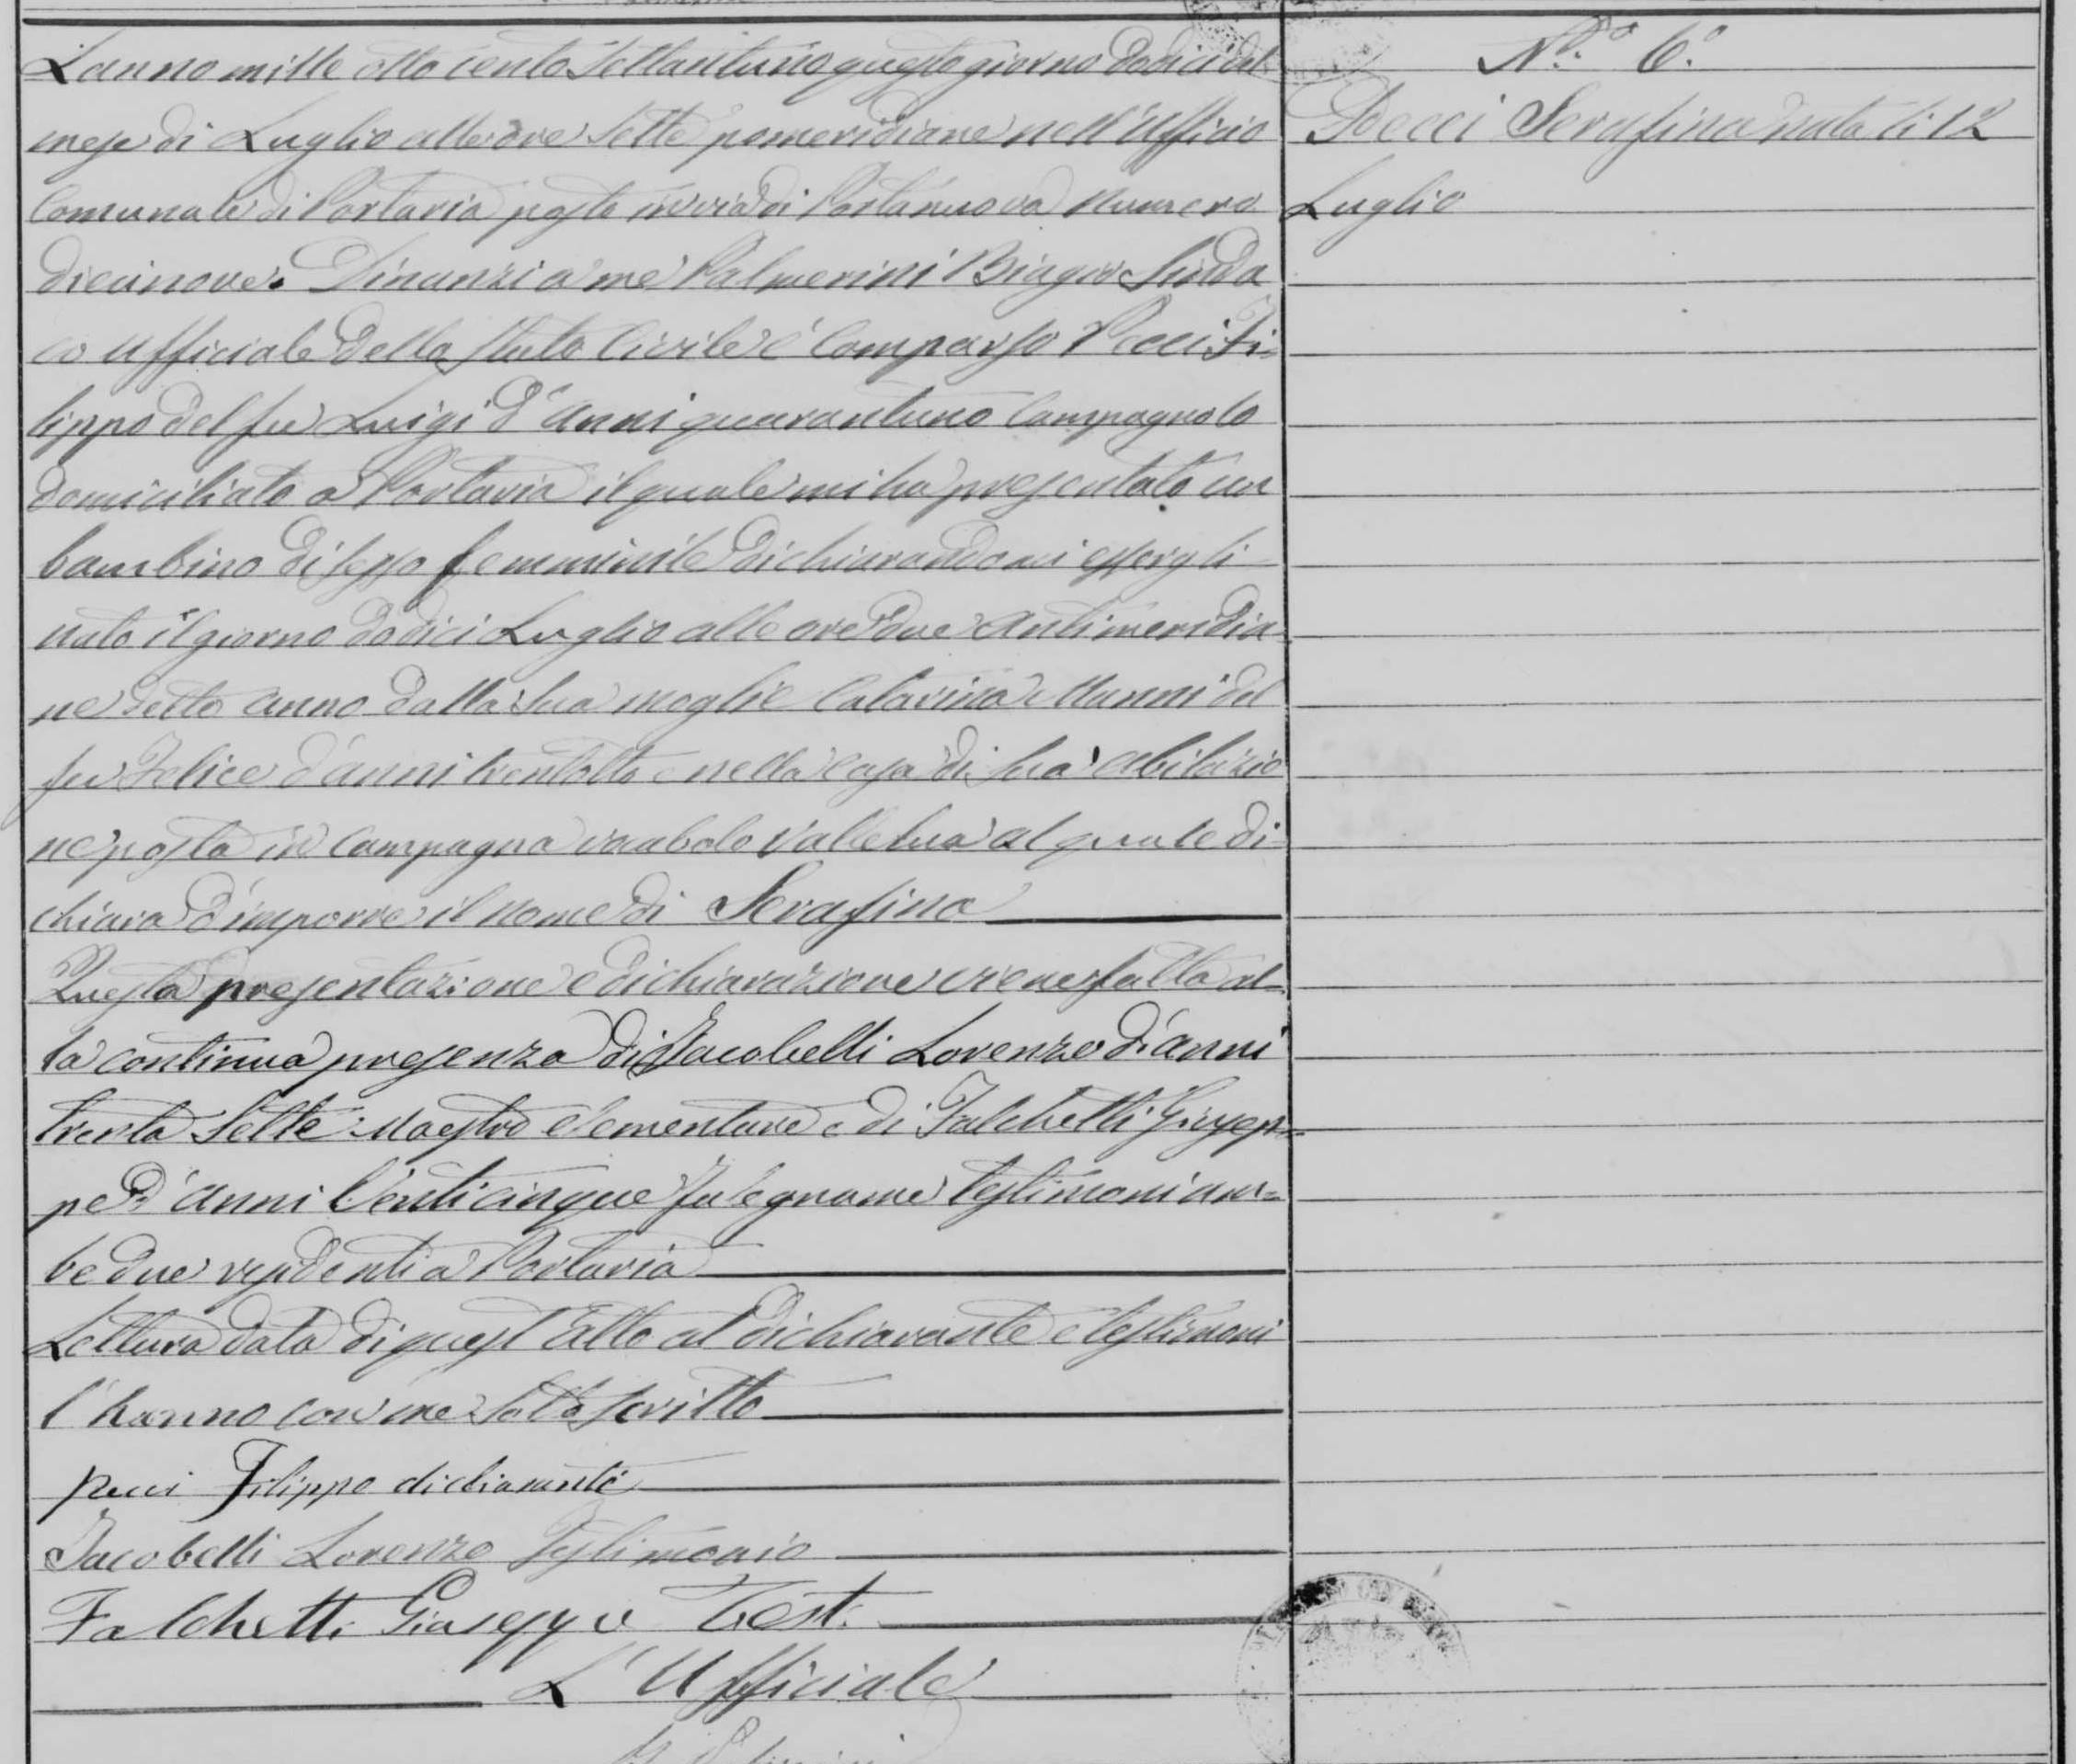 L'anno mille otto cento Settantuno questo giorno dodici del
mese di Luglio alle ore Sette pomeridiane nell'Ufficio
Comunale di Portaria posto in via di Porta nuova Numero
diecinove. Dinanzi a me Palmerini Biagio Sinda
co Ufficiale dello Stato Civile è Comparso Pecci Fi-
lippo del fu Luigi d'Anni quarantuno Campagnolo
domiciliato a Portaria il quale mi ha presentato un
bambino di sesso femminile dichiarandomi essergli
nato il giorno dodici Luglio alle ore due Antimeridia
ne detto anno dalla Sua moglie Catarina Nanni del
fu Felice d'anni trentotto e nella casa di Sua abitazio
ne posta in Campagna vocabolo al quale di
chiara d'imporre il nome di Serafina
Questa presentazione e dichiarazione viene fatta al-
la continua presenza di Jacobelli Lorenzo d'anni
trenta Sette Maestro elementare e di Falchetti Giusep-
pe d'anni Venticinque Falegname Testimoni am=
bedue residenti a Portaria
Lettura data di quest'Atto al dichiarante e testimoni
l'hanno con me Sotto scritto
Pecci Filippo dichiarante
Jacobelli Lorenzo Testimonio
Falchetti Giuseppe Test.
L'Ufficiale
N.° 6.°
Pecci Serafina nata li 12
Luglio